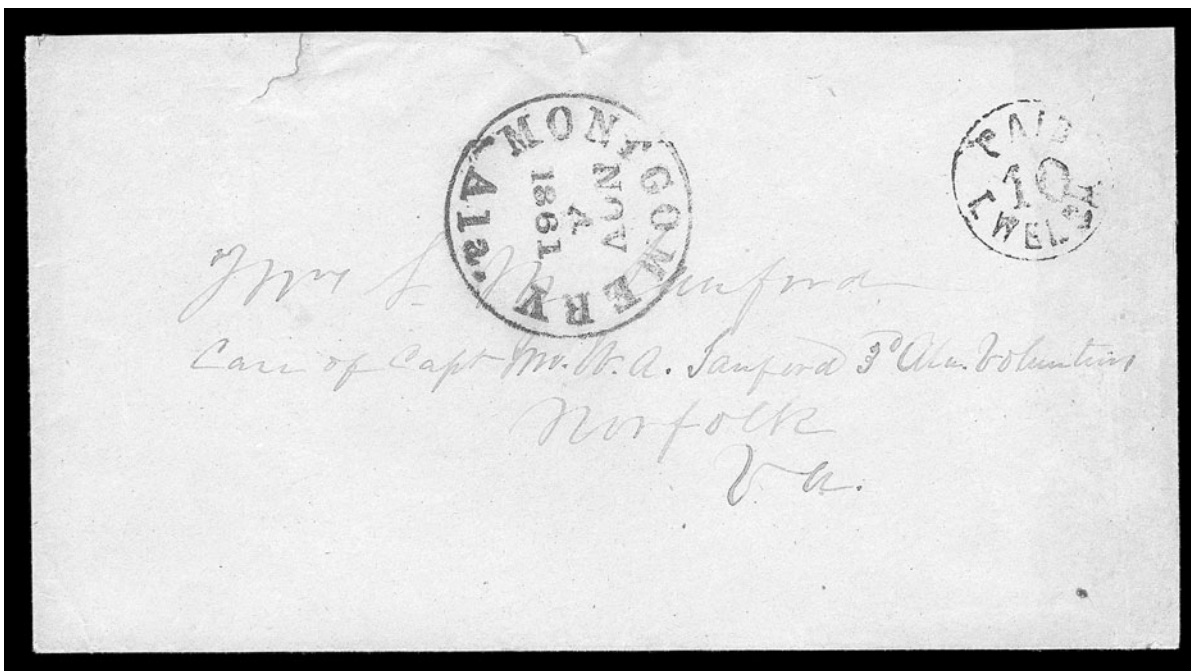 MONTGOMERY
Ala.
NOV
4
1861
PAID
10
T WELSH
S. M. Sanford
Care of Capt Mr. W. A. Sanford 3d Ala. Volunteers
Norfolk
Va.